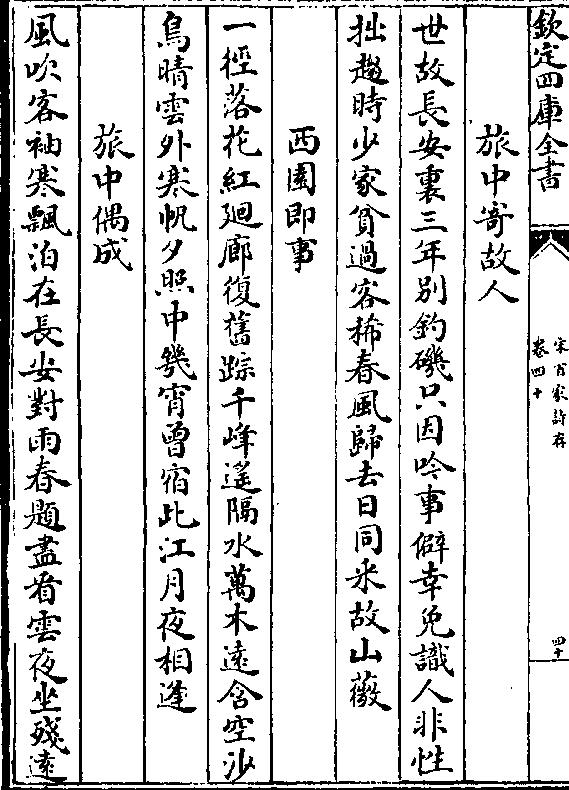 欽定四庫全書
宋百家詩存
卷四十
四十
旅中寄故人
世故長安裏三年別釣磯只因吟事僻幸免識人非性
拙趨時少家貧過客稀春風歸去日同采故山薇
西園即事
一徑落花紅廻廊復舊踪千峰遙隔水萬木遠含空沙
鳥晴雲外寒帆夕照中幾宵曾宿此江月夜相逢
旅中偶成
風吹客袖寒飄泊在長安對雨春題盡看雲夜坐殘遠